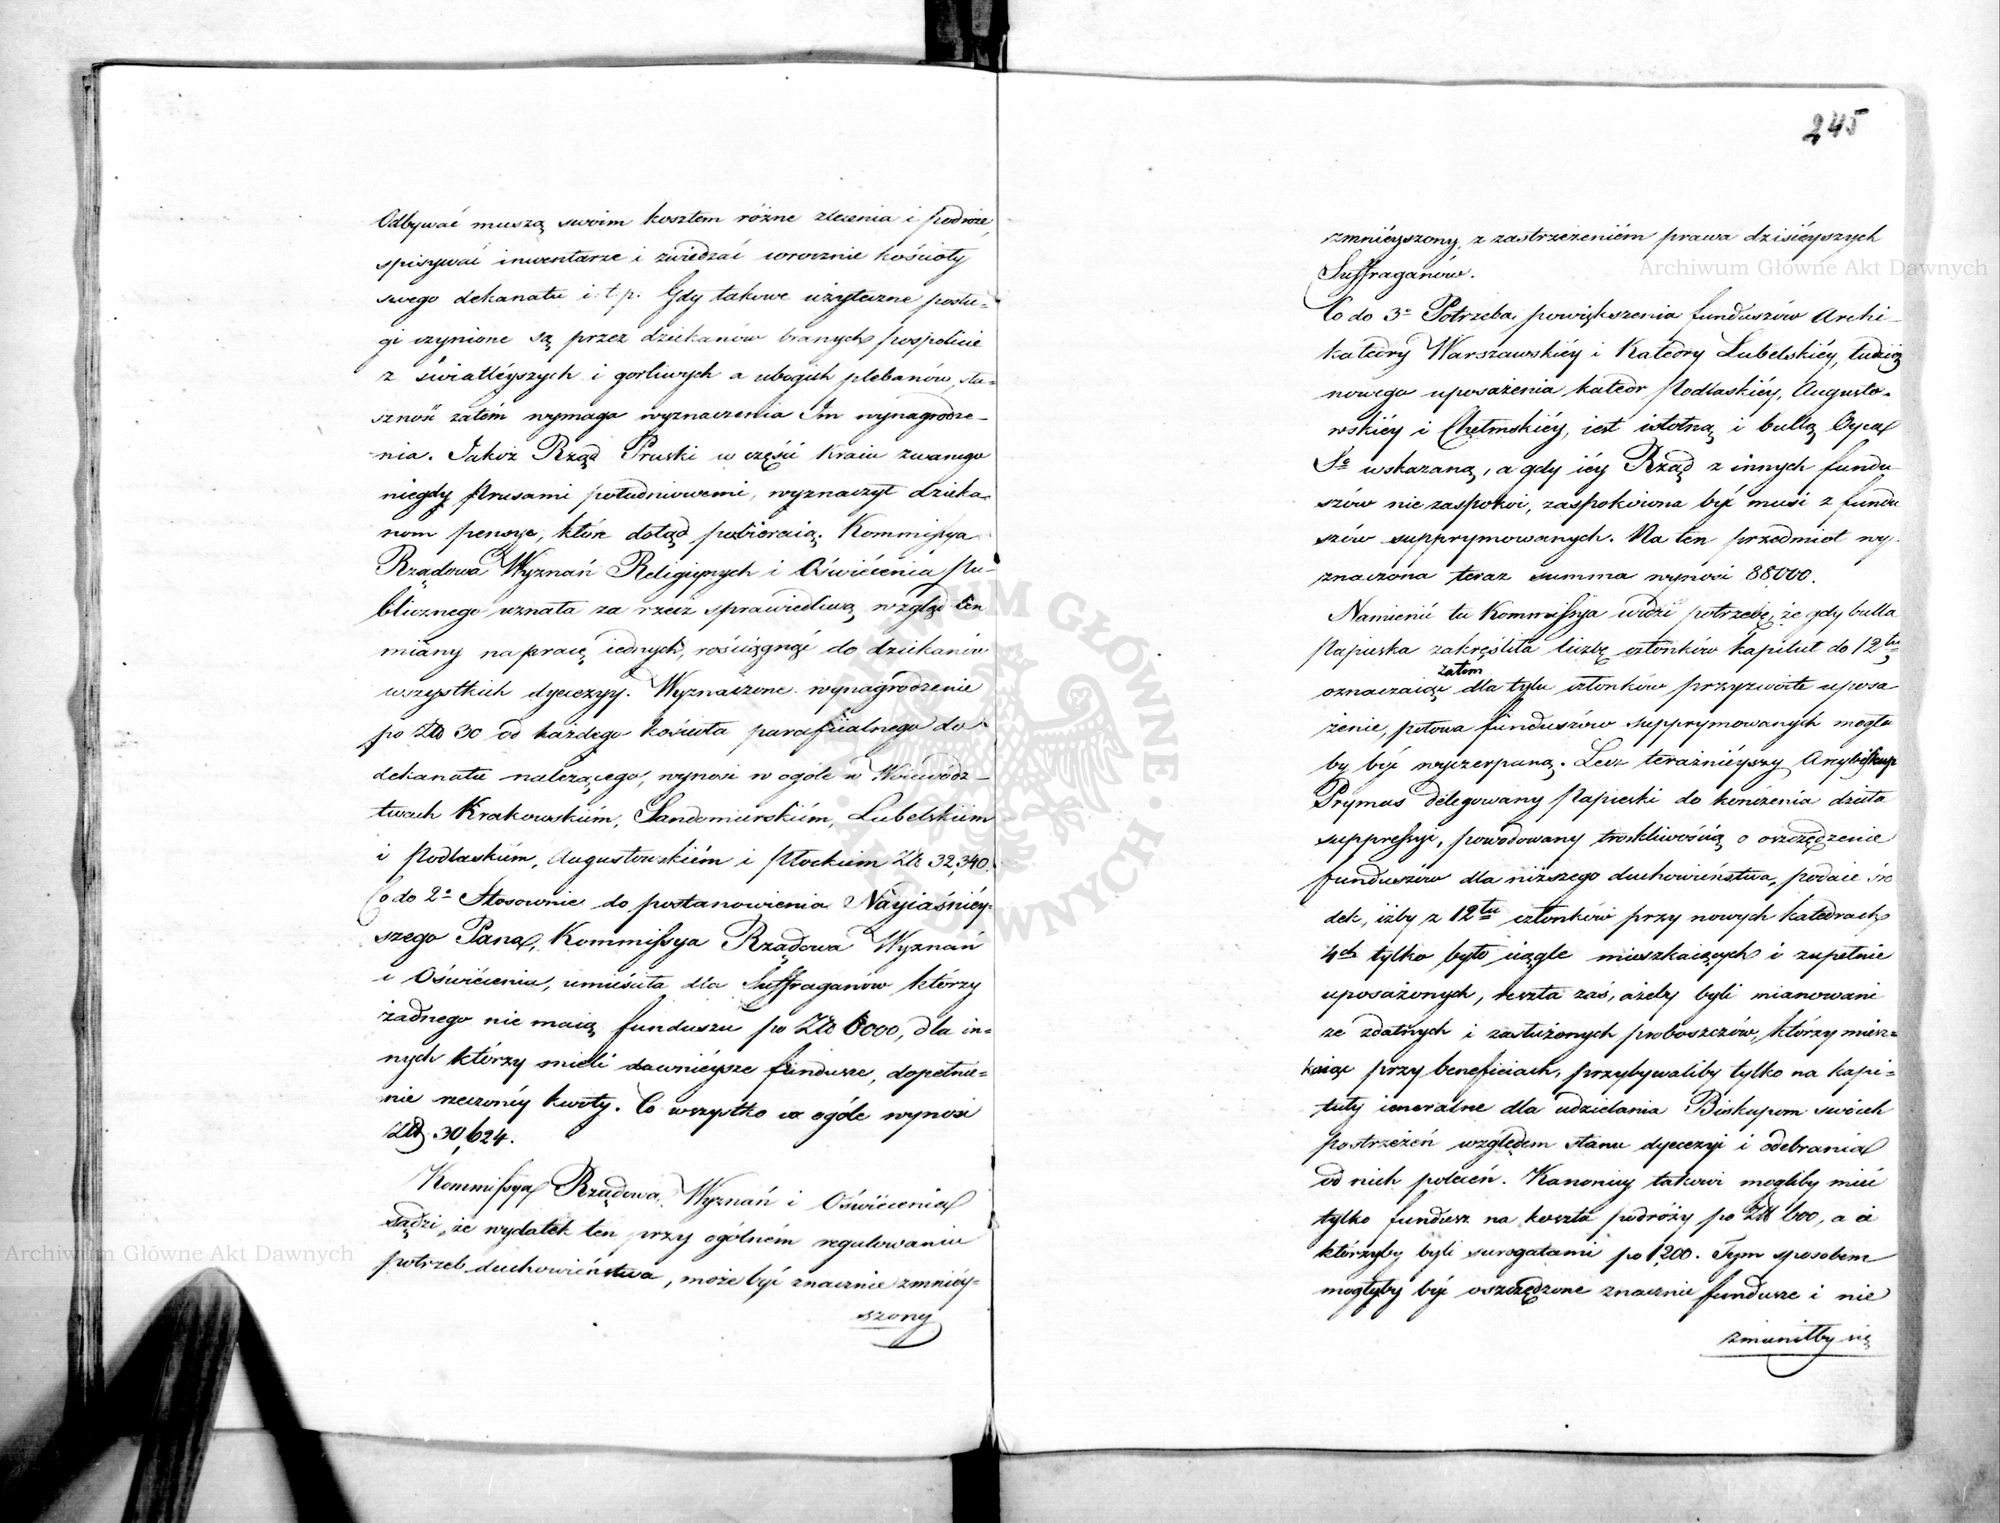 Odbywać muszą swoim kosztem różne zlecenia i podróże,
spisywać inwentarze i zwiedzać corocznie kościoły
swego dekanatu i. t. p. Gdy takowe użyteczne posłu-
gi czynione są przez dziekanów branych pospolicie
z światléyszych i gorliwych a ubogich plebanów, słu-
szność zatém wymaga wyznaczenia Im wynagrodze-
nia. Jakoż Rząd Pruski w części Kraiu zwanego
niegdy Prusami południowemi, wyznaczył dzieka-
nom pensye, które dotąd pobieraią. Kommissya
Rządowa Wyznań Religiynych i Oświécenia Pu-
blicznego uznała za rzecz sprawiedliwą wzgląd ten
miany na pracę iednych, rościągnąć do dziekanów
wszystkich dyecezyy. Wyznaczone wynagrodzenie
po Złł 30 od każdego kościoła parafiialnego do
dekanatu należącego, wynosi w ogóle w Woiewódz-
twach Krakowskiém, Sandomirskiém, Lubelskiém
i Podlaskiém, Augustowskiém i Płockiem Złł 32,340.
Co do 2° Stosownie do postanowienia Nayiaśniéy-
szego Pana, Kommissya Rządowa Wyznań
i Oświécenia, umieściła dla Suffraganów którzy
żadnego nie maią funduszu po Złł 6000, dla in-
nych którzy mieli dawniéysze fundusze, dopełnie-
nie rzeczonéy kwoty. Co wszystko w ogóle wynosi
Złł 30,624.
Kommissya Rządowa Wyznań i Oświécenia
sądzi, że wydatek ten przy ogólném regulowaniu
potrzeb duchowieństwa, może być znacznie zmniéy-
szony
245
zmniéyszony, z zastrzeżeniém prawa dzisiéyszych
Suffraganów.
Co do 3° Potrzeba powiększenia funduszów Archi-
katedry Warszawskiéy i Katedry Lubelskiéy, tudzież
nowego uposażenia katedr Podlaskiéy, Augusto-
wskiéy i Chełmskiéy, iest istotną i bullą Oyca
So wskazaną, a gdy iéy Rząd z innych fundu
szów nie zaspokoi, zaspokoiona być musi z fundu
szów supprymowanych. Na ten przedmiot wy-
znaczona teraz summa wynosi 88000.
Namienić tu Kommissya widzi potrzebę, że gdy bulla
Papieska zakréśliła liczbę członków kapituł do 12tu
zatém
oznaczaiąc dla tylu członków przyzwoite uposa
żenie, połowa funduszów supprymowanych mogła
by być wyczerpaną. Lecz teraźniéyszy Arcybiskup
Prymas delegowany Papieski do kończenia dzieła
suppressyi, powodowany troskliwością o oszczędzenie
funduszów dla niższego duchowieństwa, podaie śro
dek, iżby z 12tu członków przy nowych katedrach
4ch tylko było ciągle mieszkaiących i zupełnie
uposażonych, reszta zaś, ażeby byli mianowani
ze zdatnych i zasłużonych proboszczów, którzy miesz-
kaiąc przy beneficiach, przybywaliby tylko na kapi-
tuły ieneralne dla udzielania Biskupom swoich
postrzeżeń względem stanu dyecezyi i odebrania
od nich poleceń. Kanonicy takowi mogliby mieć
tylko fundusz na koszta podróży po Złł 600, a ci
którzyby byli surogatami po 1,200. Tym sposobem
mogłyby być oszczędzone znacznie fundusze i nie
zmieniłby się